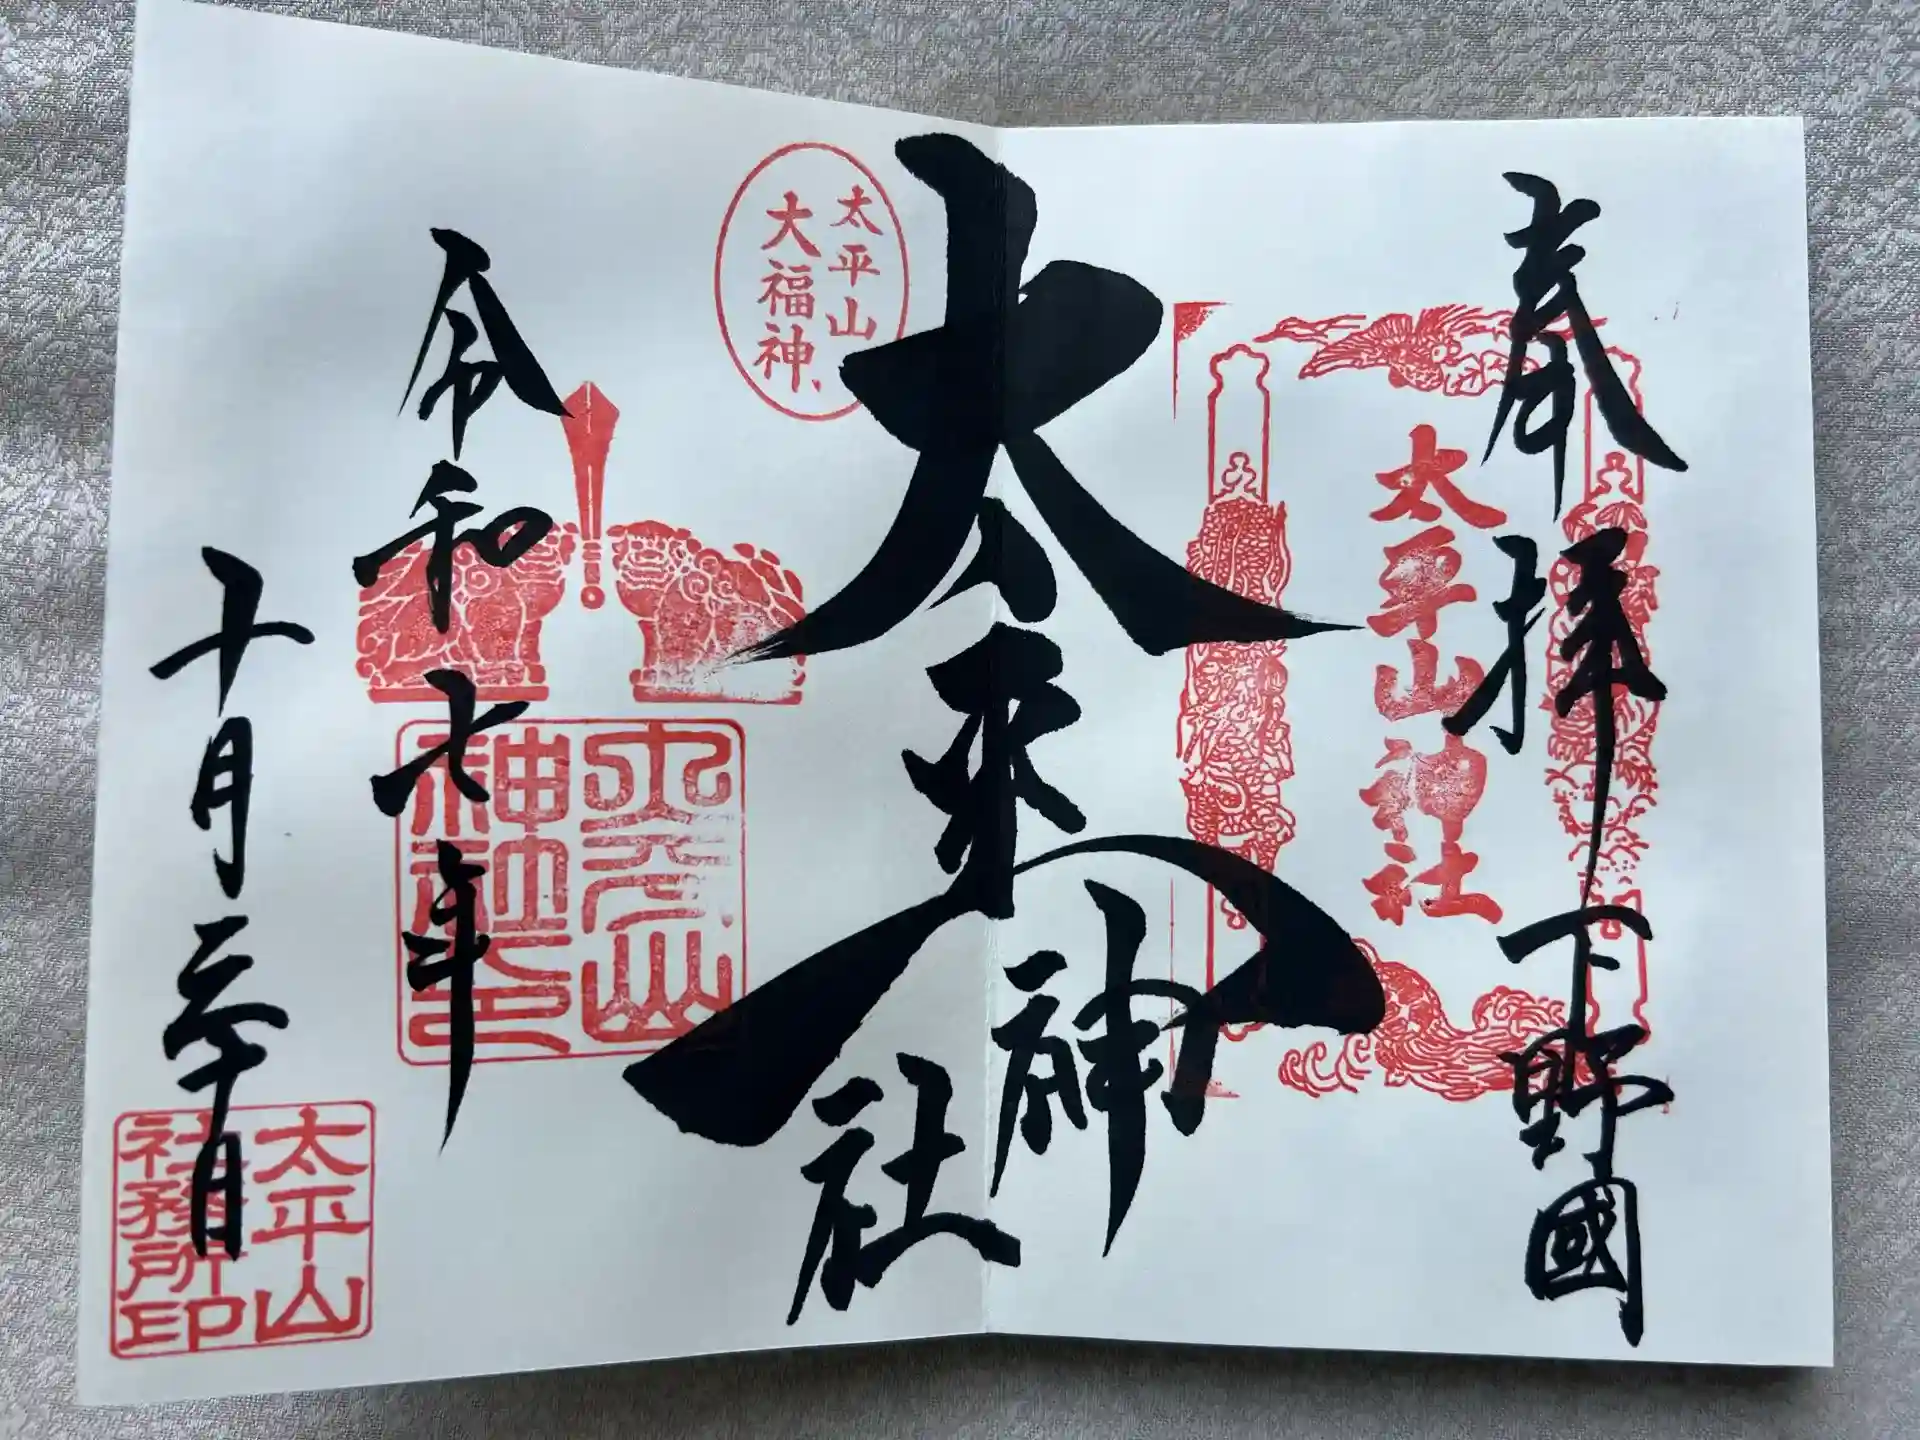 奉拝 下野國
太平山神社
太平山神社
太平山
大福神
令和七年
太平山
神社印
十月三十日
太平山
社務所印